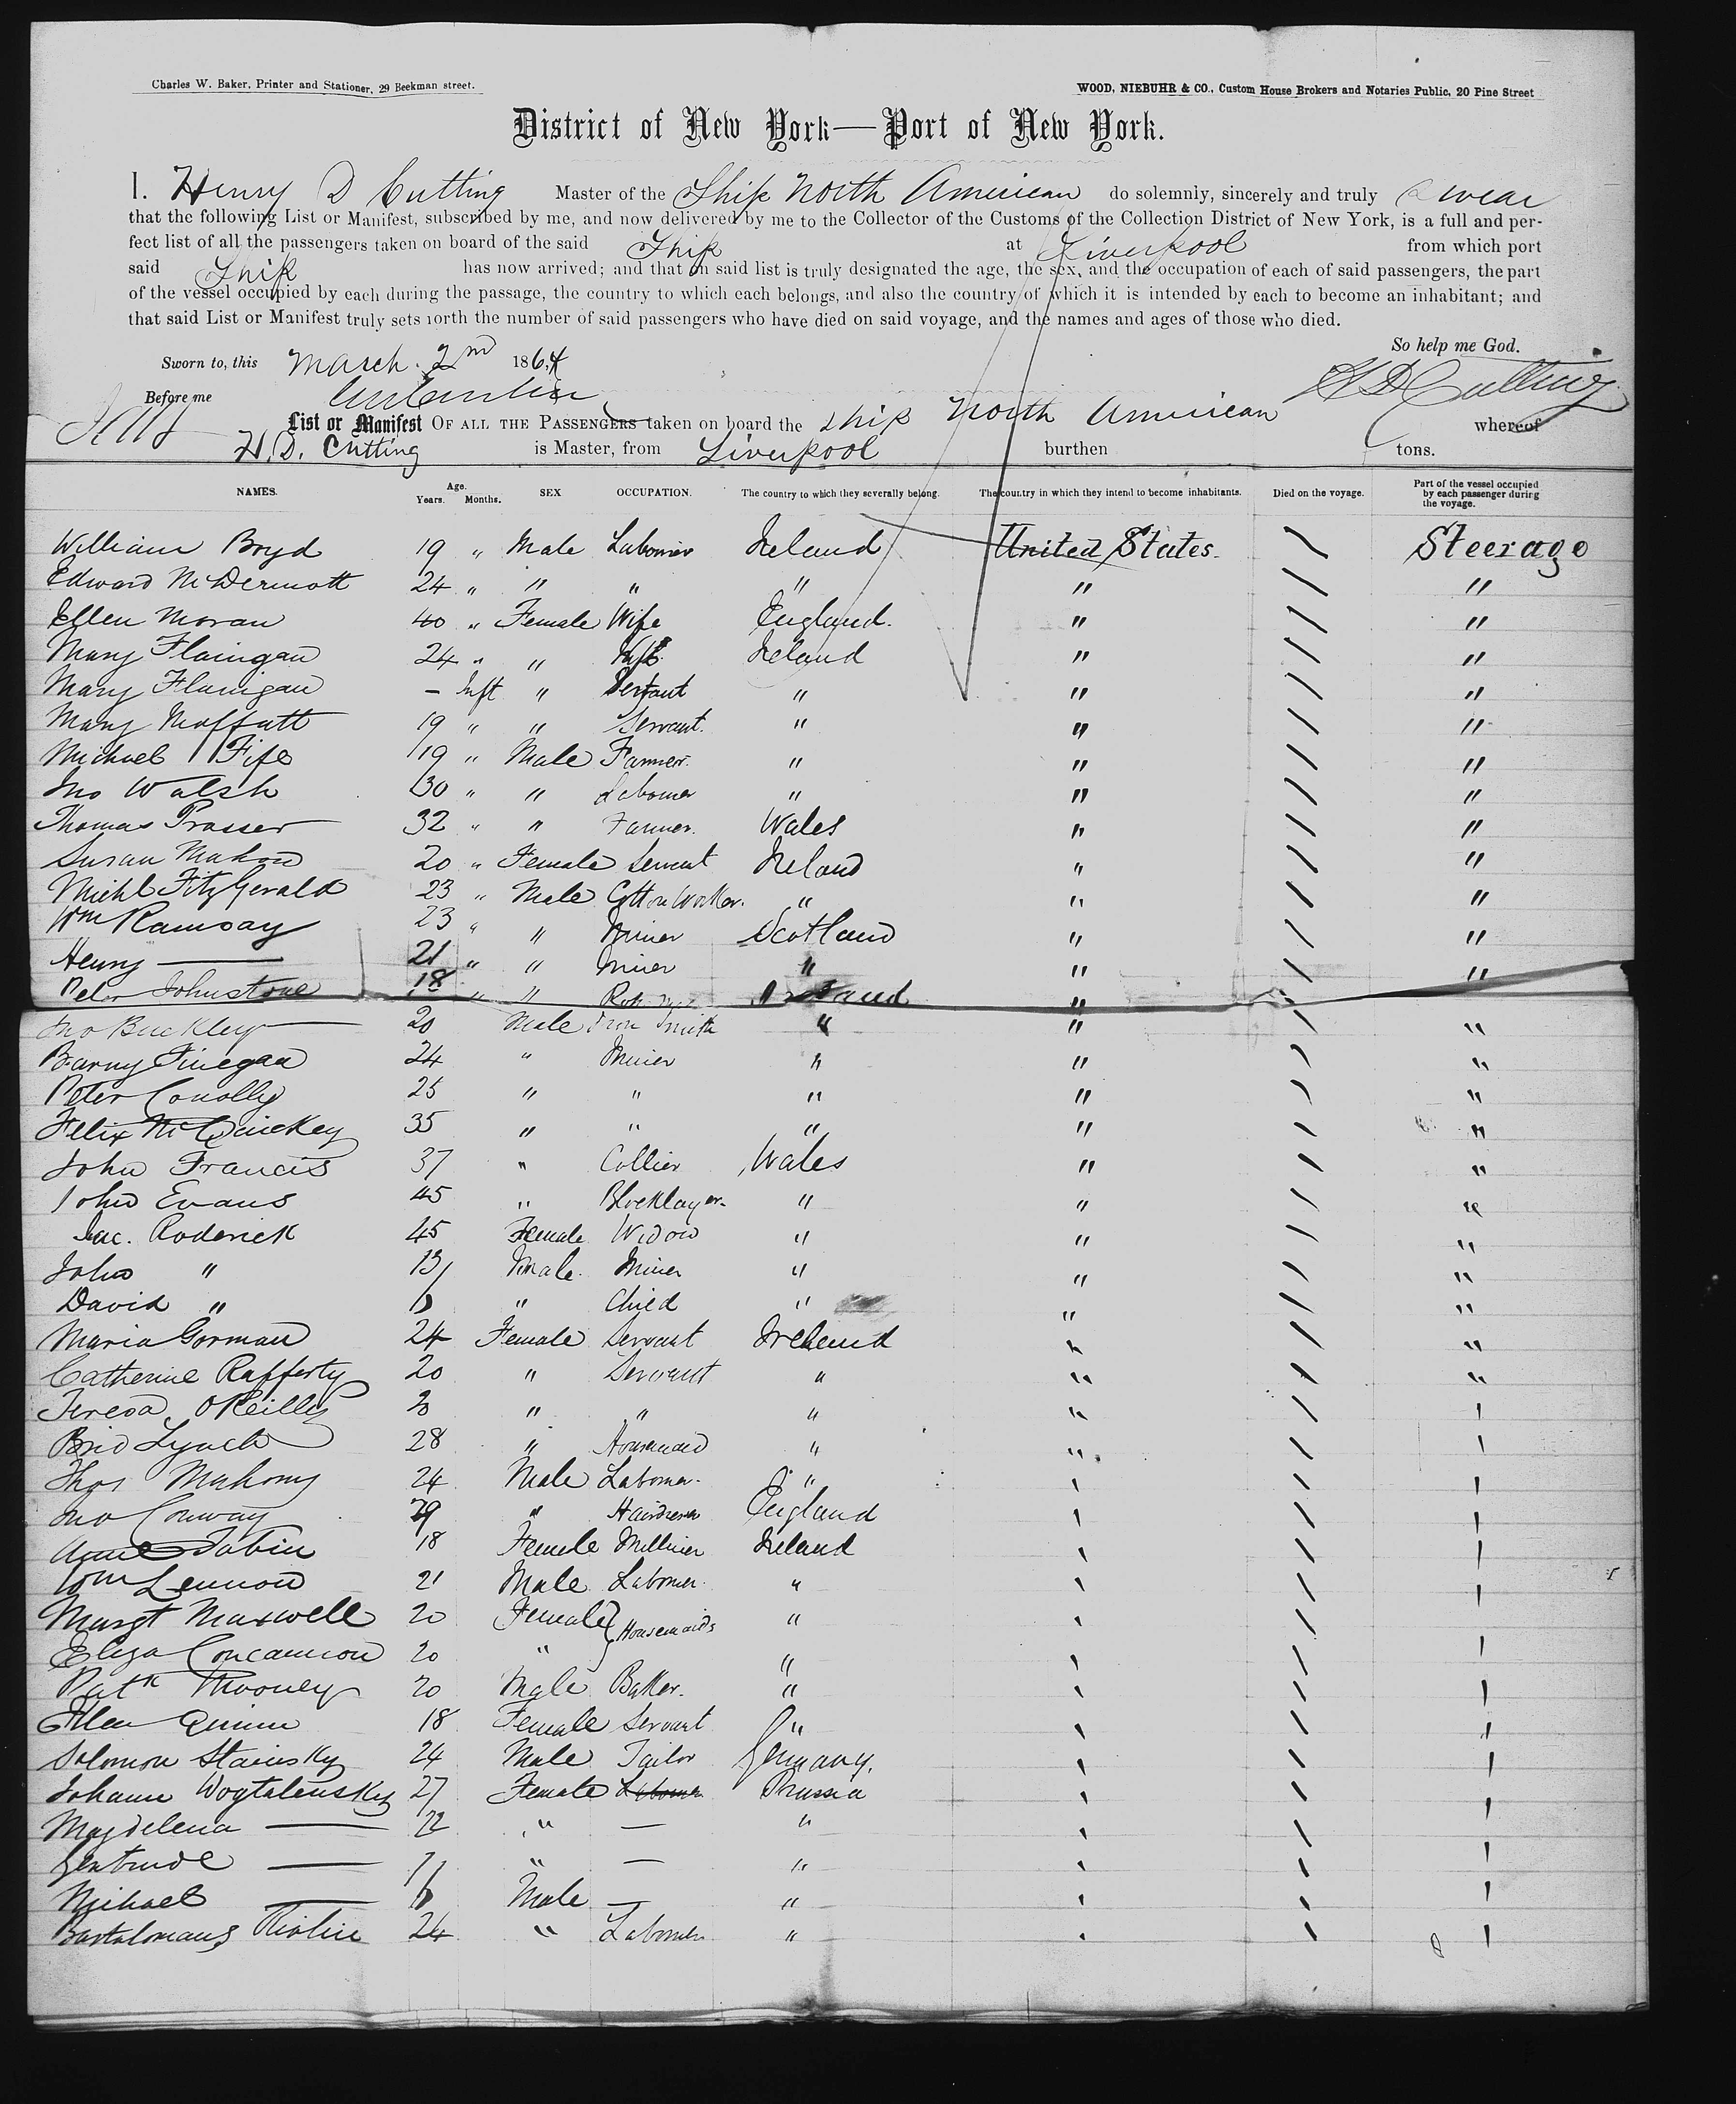 Charles W. Baker, Printer and Stationer, 29 Beekman street.
WOOD, NIEBUHR & CO., Custom House Brokers and Notaries Public, 20 Pine Street
District of New York—Port of New York.
I. Henry D Cutting Master of the Ship North American do solemnly, sincerely and truly swear
that the following List or Manifest, subscribed by me, and now delivered by me to the Collector of the Customs of the Collection District of New York, is a full and per-
fect list of all the passengers taken on board of the said Ship at Liverpool from which port
said Ship has now arrived; and that on said list is truly designated the age, the sex, and the occupation of each of said passengers, the part
of the vessel occupied by each during the passage, the country to which each belongs, and also the country of which it is intended by each to become an inhabitant; and
that said List or Manifest truly sets forth the number of said passengers who have died on said voyage, and the names and ages of those who died.
So help me God.
Sworn to, this March 2nd 1864
H D Cutting
Before me
List or Manifest OF ALL THE PASSENGERS taken on board the Ship North American whereof
H. D. Cutting is Master, from Liverpool burthen tons.
NAMES. Age. Years. Months. SEX OCCUPATION. The country to which they severally belong. The country in which they intend to become inhabitants. Died on the voyage. Part of the vessel occupied by each passenger during the voyage.
William Boyd 19 " Male Labourer Ireland United States. / Steerage
Edward McDermott 24 " " " " " / "
Ellen Moran 40 " Female Wife England. " / "
Mary Flanigan 24 " " Wife Ireland " / "
Mary Flanigan - Inft " " " / "
Mary Moffatt 19 " " Servant. " " / "
Michael Fife 19 " Male Farmer. " " / "
Jno Walsh 30 " " Labourer " " / "
Thomas Prosser 32 " " Farmer. Wales " / "
Susan Mahon 20 " Female Servant Ireland " / "
Michl FitzGerald 23 " Male Cotton Worker. " " / "
Wm Ramsay 23 " " Miner Scotland " / "
Henry — 21 " " Miner " " / "
Peter Johnstone 18 " " "
Jno Buckley 20 Male Iron Smith " " "
Barny Finegan 24 " Miner " " / "
Peter Conolly 25 " " " " / "
Felix McQuickey 35 " " " " / "
John Francis 37 " Collier Wales " / "
John Evans 45 " Blocklayer. " " / "
Jac. Roderick 45 Female Widow " " / "
John " 13 Male. Miner " " / "
David " " Child " " / "
Maria Gorman 24 Female Servant Ireland " / "
Catherine Rafferty 20 " Servant " " / "
Teresa OReilly 20 " " " " / '
Brid Lynch 28 " Housemaid " " / '
Thos Mahony 24 Male Labourer. " ' / '
Jno Conway 29 " Hairdresser England ' / '
Anne Tobin 18 Female Milliner Ireland ' / '
Wm Lennon 21 Male Labourer. " ' / '
Margt Maxwell 20 Female } Housemaids " ' /
Eliza Concannon 20 " " ' / '
Patk Mooney 20 Male Baker. " ' / '
Ellen Quinn 18 Female Servant " ' / '
Solomon Stainsky 24 Male Tailor Germany. ' / '
Johann Wogtalensky 27 Female Labourer Prussia ' / '
Magdelena — 22 " — " ' / '
Gertrude — " — " ' / '
Michael — Male — " ' / '
Bartolomaus 24 " Labourer " ' / '